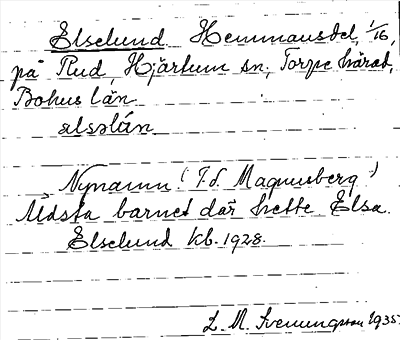 Elselund Hemmansdel, 1/16,
på Rud, Hjärtum sn, Torpe härad,
Bohus län
ælsəlún
Nynamn! (F.d. Magnusberg)
Äldsta barnet där hette Elsa.
Elselund kb. 1928.
L. M. Svenungsson 1935